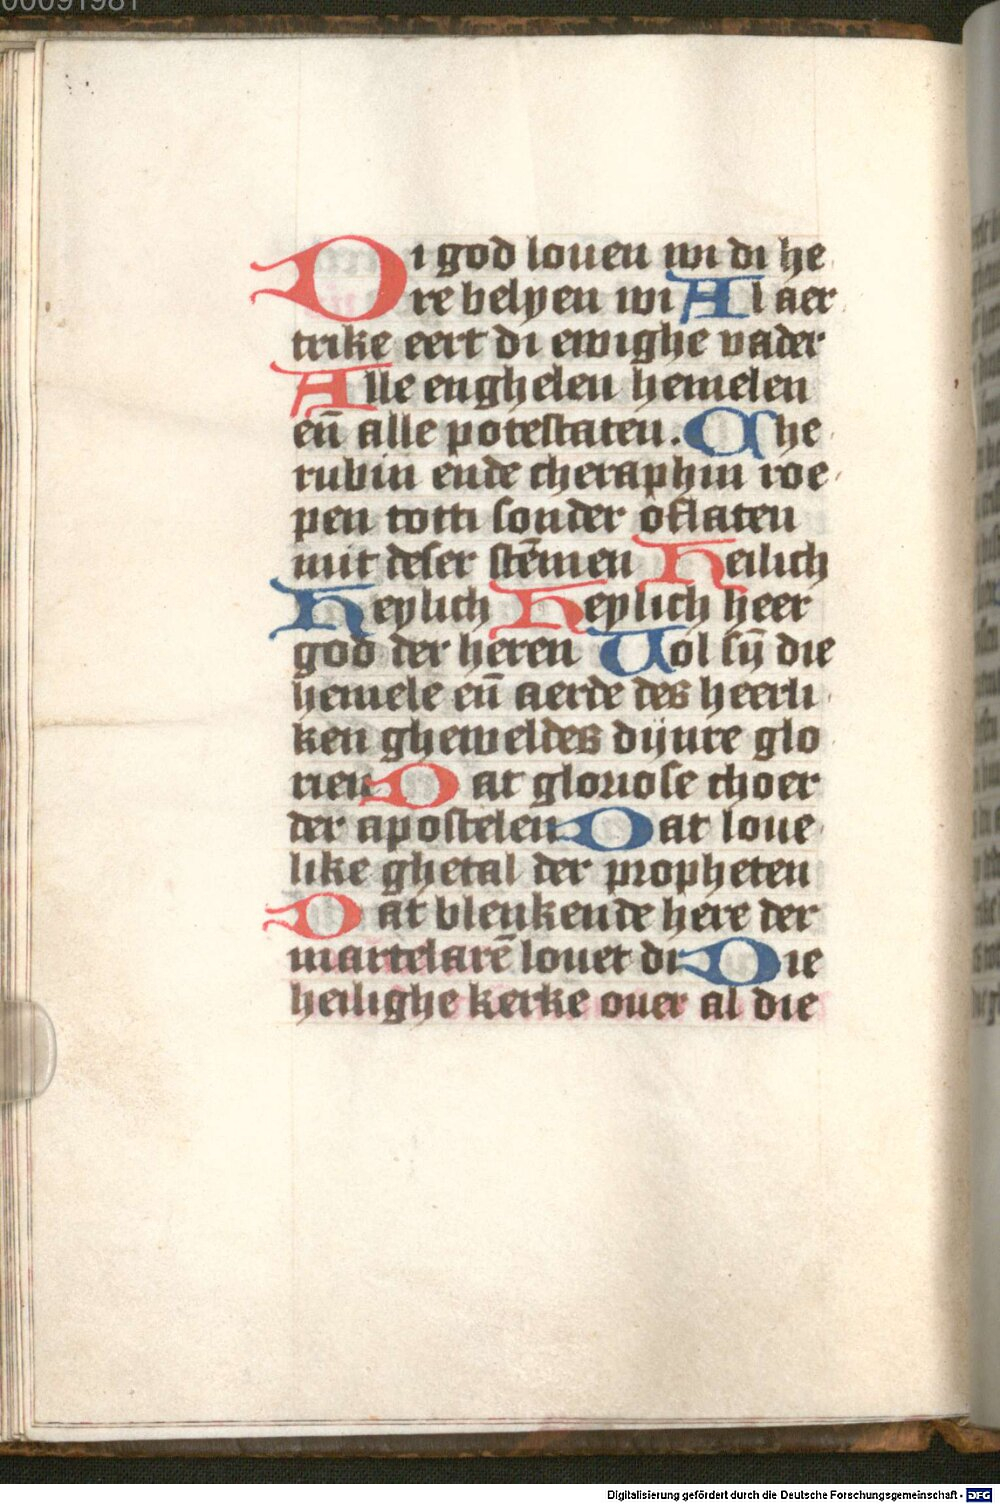 00091981
Di god louen wi di he
re belyen wi Al aer
trike eert di ewighe vader
Alle enghelen hemelen
eñ alle potestaten. Che
rubin ende cheraphin roe
pen totti sonder oflaten
mit deser stēmen Heilich
Heylich Heylich heer
god der heren Uol sÿ die
hemele eñ aerde des heerli
ken gheweldes dijnre glo
rien Dat gloriose choer
der apostelen Dat loue
like ghetal der propheten
Dat blenkende here der
martelarē louet di Die
heilighe kerke ouer al die
Digitalisierung gefördert durch die Deutsche Forschungsgemeinschaft - DFG